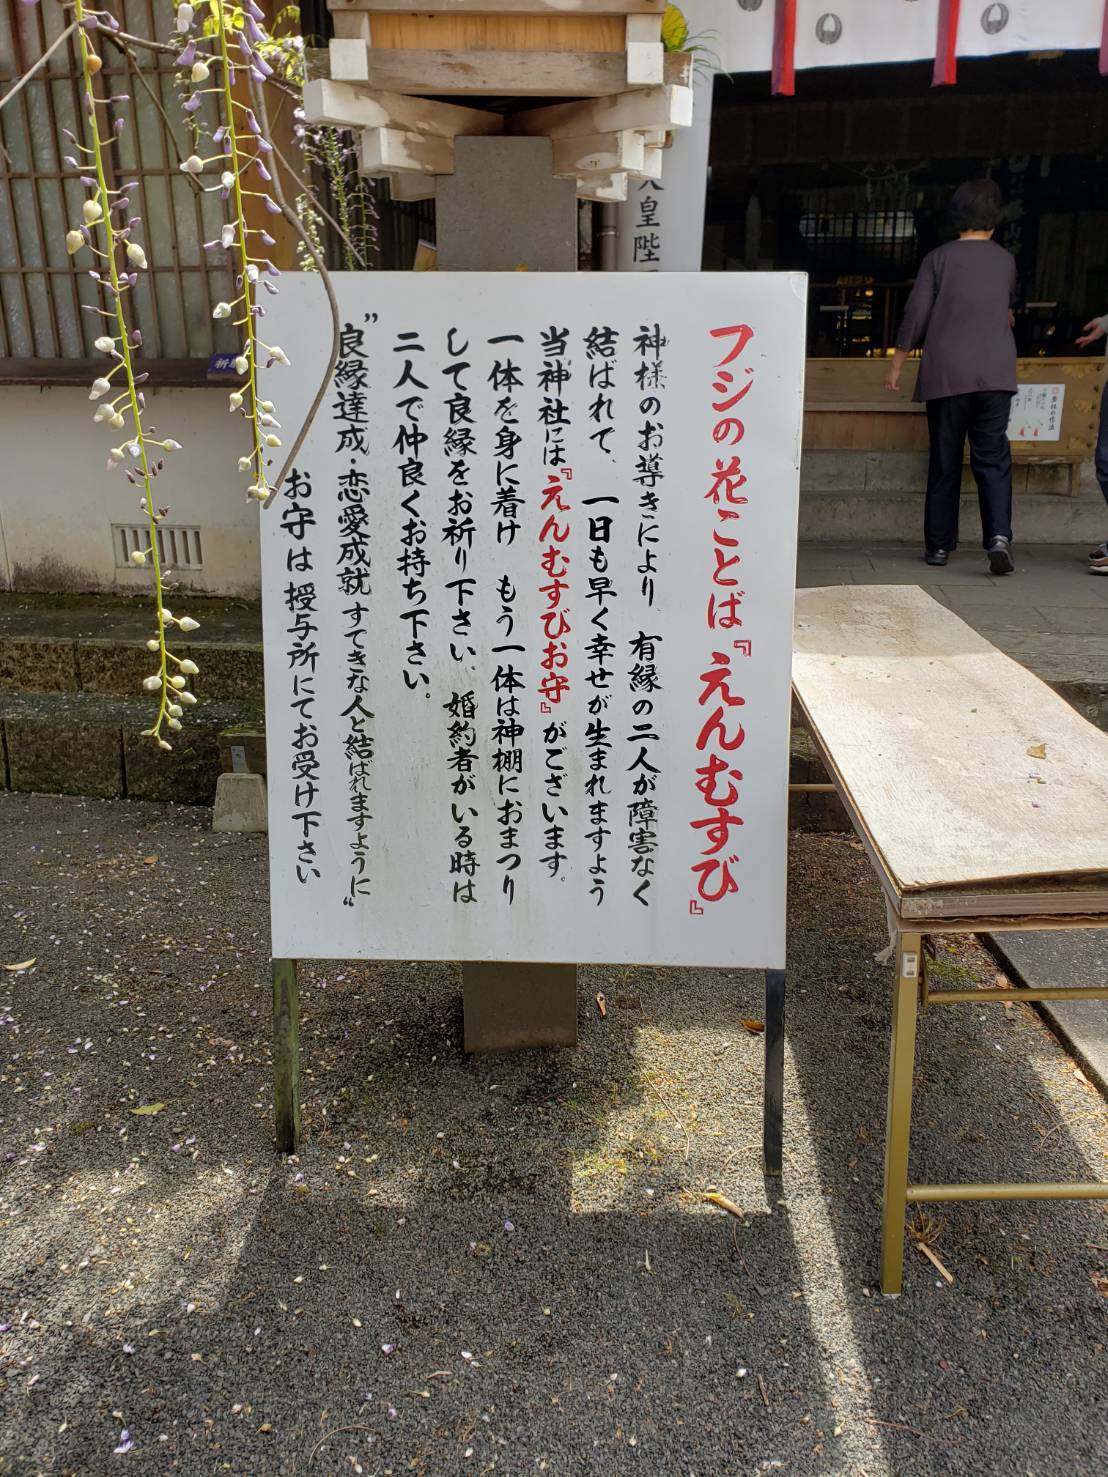 フジの花ことば『えんむすび』
神様のお導きにより 有縁の二人が障害なく
結ばれて、一日も早く幸せが生まれますよう
当神社には『えんむすびお守』がございます。
一体を身に着け もう一体は神棚におまつり
して良縁をお祈り下さい、婚約者がいる時は
二人で仲良くお持ち下さい。
"良縁達成・恋愛成就 すてきな人と結ばれますように"
お守は授与所にてお受け下さい
皇陛